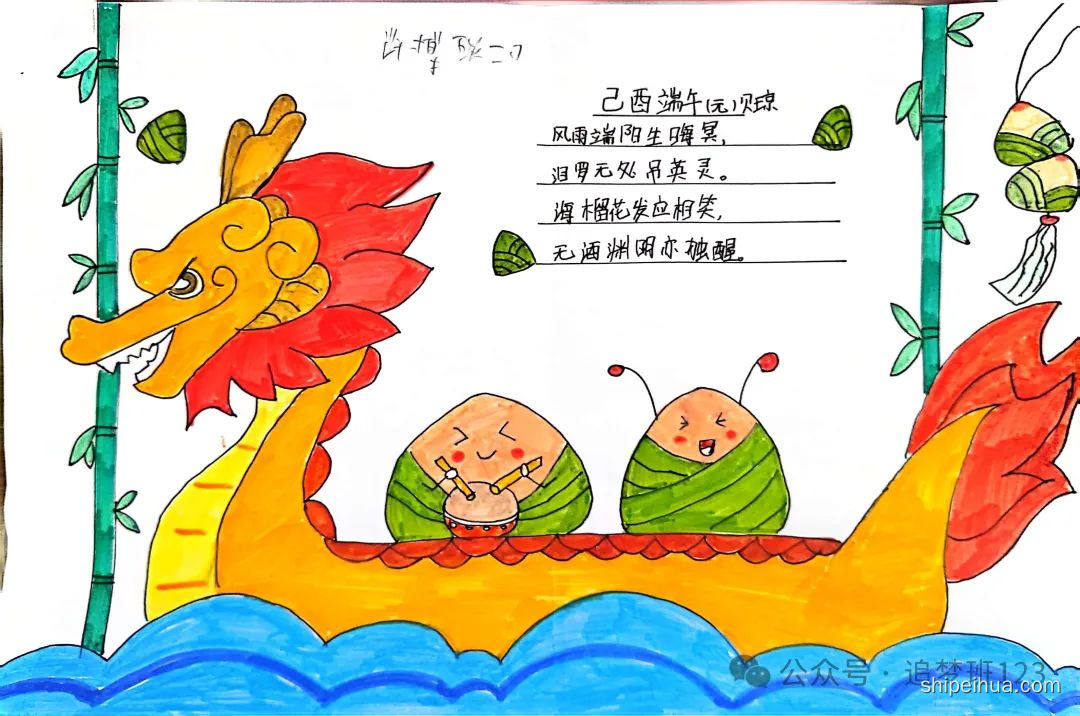 己酉端午(元)贝琼
风雨端阳生晦冥,
汨罗无处吊英灵。
海榴花发应相笑,
无酒渊明亦独醒。
公众号·追梦班123
shipeihua.com